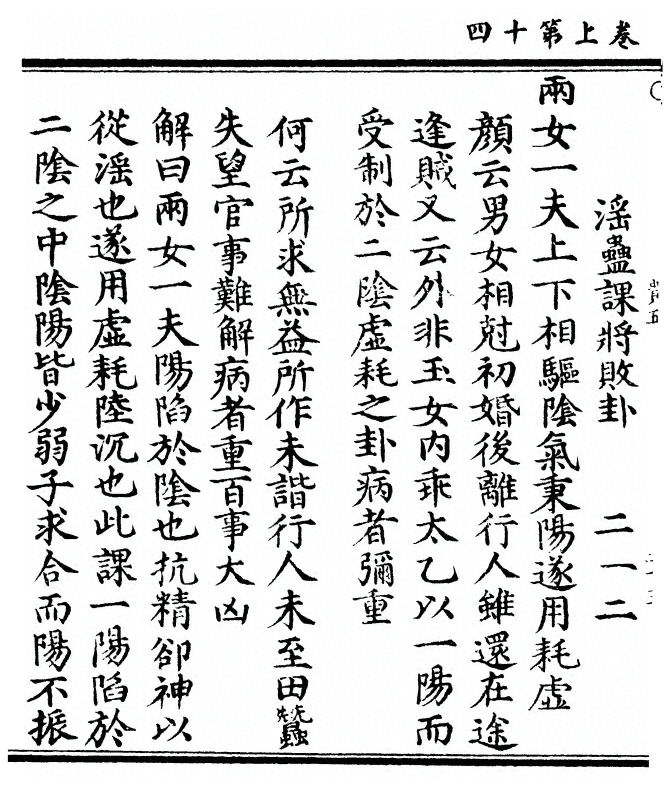 卷上第十四
淫蠱課將敗卦 二一二
兩女一夫上下相驅陰氣乘陽遂用耗虛
顏云男女相尅初婚後離行人雖還在途
逢賊又云外非玉女內乖太乙以一陽而
受制於二陰虛耗之卦病者彌重
何云所求無益所作未諧行人未至田蠶
失望官事難解病者重百事大凶
解曰兩女一夫陽陷於陰也抗精卻神以
從淫也遂用虛耗陸沉也此課一陽陷於
二陰之中陰陽皆少弱子求合而陽不振